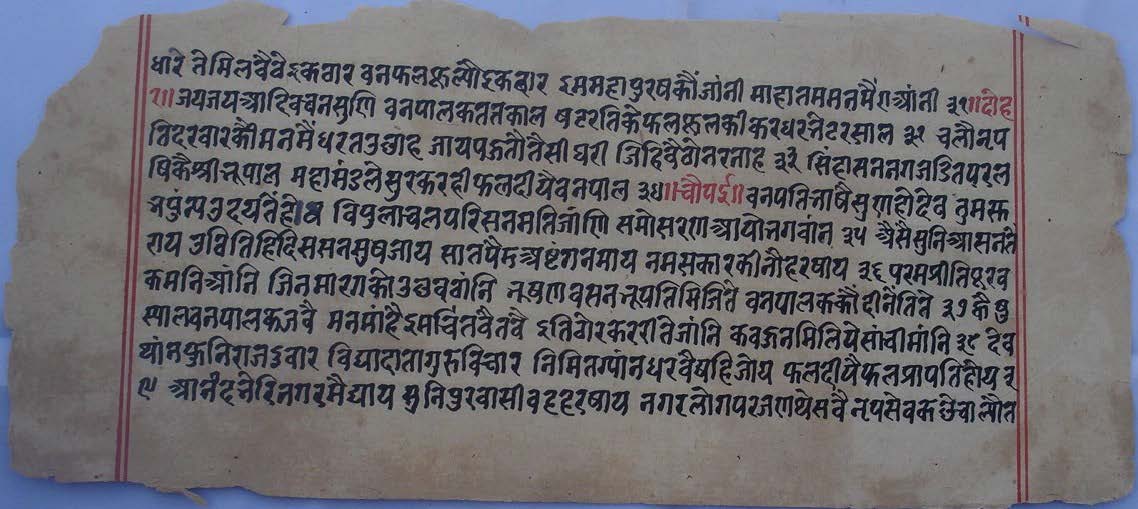 धारे तेमिलवैवेइकवार वनफलफूलल्यौइकवार इममहापुरषकौंजांनी माहातममनमैंगआंनी ३१॥दोह
रा॥जयजयआदिवचनसुणि वनपालकततकाल षटरतिकेफलफूलकीकरधरनेटरसाल ३२ चलौनृप
तिदरवारकौमनमैंधरतउछाह जायपहूतौतैसीघरी जिहिवैठोनरनाह ३३ सिंहासननगजडितपरल
षिकैश्रीनृपाल महामंडलेसुरकरही फलदीयेवनपाल ३४॥चौपई॥वनपतिभाषैसुणहोदेव तुमस्त
भपुंन्यउदयतेंहेव विपुलाचलपरिसनमतिजांणि समोसरणआयोभगवांन ३५ असैसुनिआसनतें
राय उठितिहिदिससनमुषजाय सातपैडअष्टंगनमाय नमसकारकीनौहरषाय ३६ परमप्रीतिपूरव
कमनिआंनि जिनमारगकोउछववांनि भूषणवसननृपतिमिजिते वनपालककौंदीनेंतिते ३७ कैषु
स्यालवनपालकजवै मनमांहैइमचिंतवैतवै इतिवोरकररीतेजांनि कवऊनमिलियेसांचीमांनि ३८ देव
थांनफुनिराजदुवार विद्यादातागुरूविचार निमितग्यांनधरवैद्यहिजोय फलदीयैफलप्रापतिहोय ३
९ आनंदभेरिनगरमैद्याय सुनिपुरवासीवहहरषाय नगरलोगपरजणथेसवै नृपसेवकछेचालौत